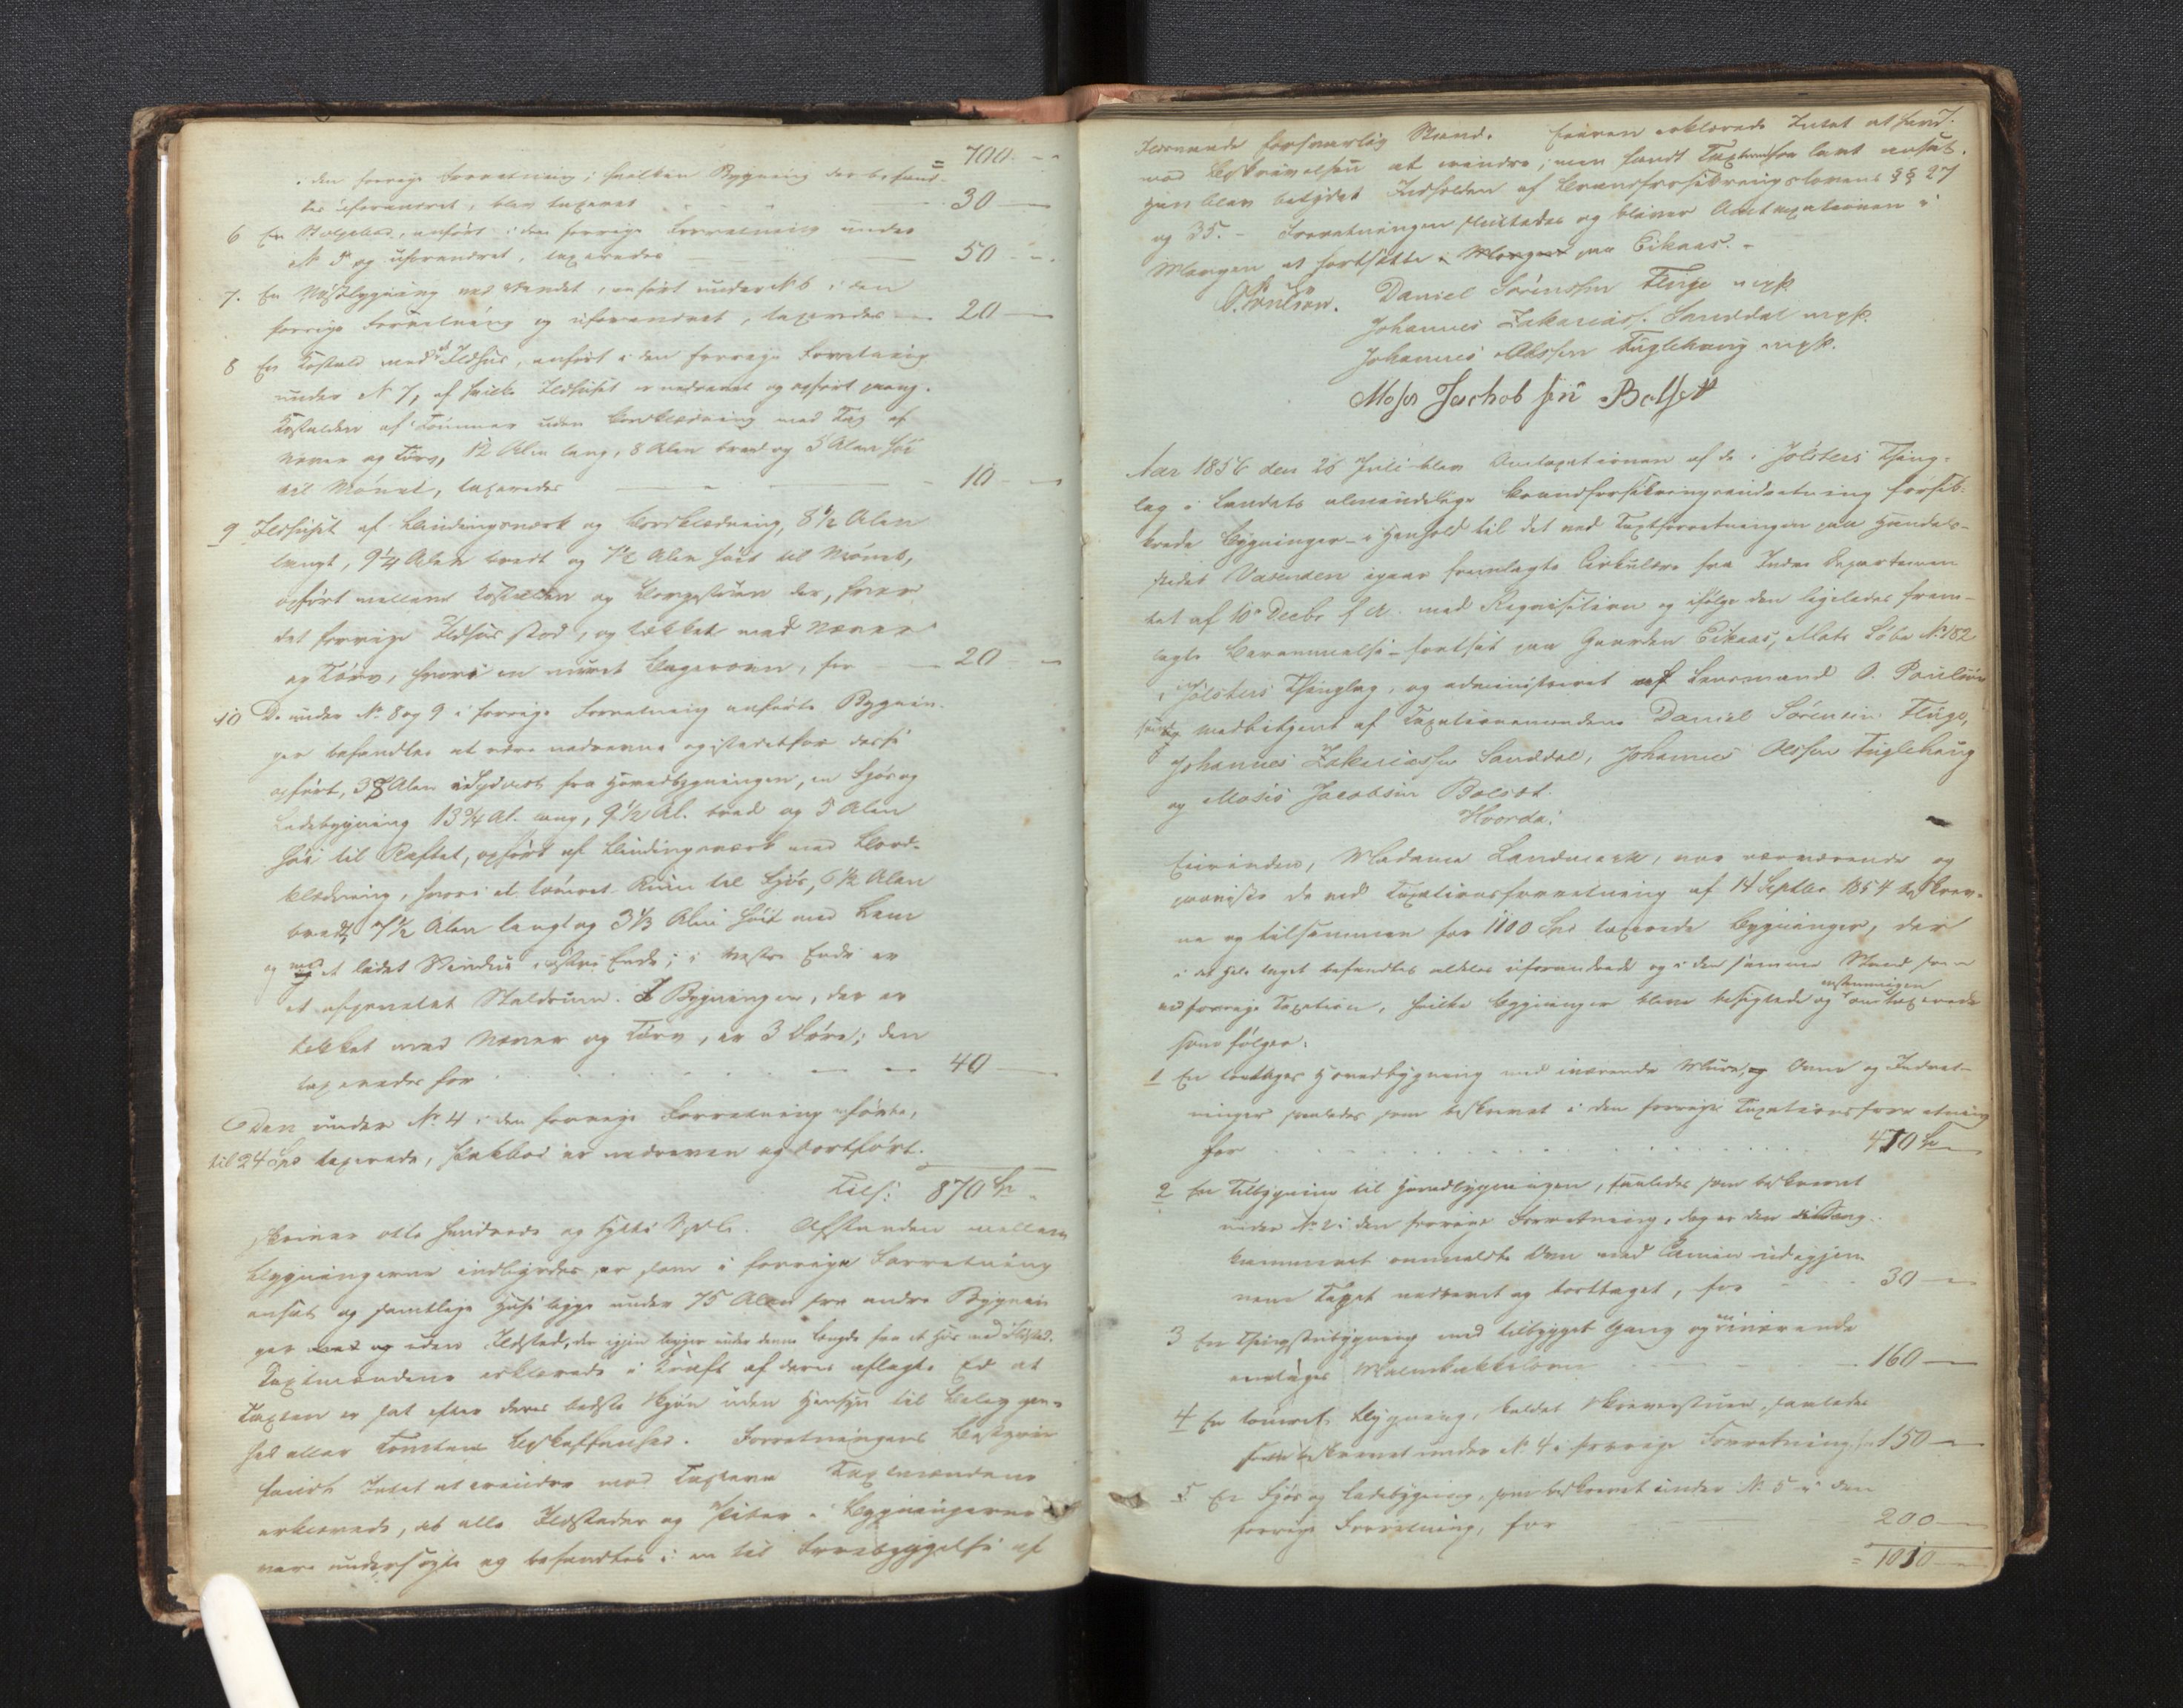 = 700 —
i den forrige Forretning; hvilken Bygning der befand-
tes uforandret, blev taxeret — 30 —
6 En Stolpebod, anført i den forrige Forretning under
No 5 og uforandret, taxeredes — 50 —
7. En Nøstbygning ved Vandet, anført under No 6 i den
forrige Forretning og uforandret, taxeredes — 20 —
8 En Kostald med Ildhus, anført i den forrige Forretning
under No 7, af hvilke Ildhuset er nedrevet og opført paany.
Kostalden af Tømmer uden Bordklædning med Tag af
Næver og Tørv, 12 Alen lang, 8 Alen bred og 5 Alen høi
til Mønet, taxeredes — 10 —
9 Ildhuset af Bindingsværk og Bordklædning, 8½ Alen
langt, 9¼ Alen bredt og 7½ Alen høit til Mønet,
opført mellem Kostalden og Borgestuen der, hvor
det forrige Ildhus stod, og tækket med Næver
og Tørv, hvori en muret Bagerovn, for — 20 —
10 De under No 8 og 9 i forrige Forretning anførte Bygnin-
ger befandtes at være nedrevne og istedetfor disse
opført, 38 Alen i Sydvest fra Hovedbygningen, en Fjøs og
Ladebygning 13¾ Al. lang, 9½ Al. bred og 5 Alen
høi til Raftet, opført af Bindingsværk med Bord-
klædning, hvori et tømret Rum til Fjøs, 6½ Alen
bredt, 7½ Alen langt og 3⅓ Alen høit med Lem
og med et lidet Vindue i østre Ende; i vestre Ende er
et afpanelet Staldrum. I Bygningen, der er
tækket med Næver og Tørv, er 3 Døre; den
taxeredes for — 40 —
Den under No 4 i den forrige Forretning anførte,
til 24 Spd taxerede, Stabbod er nedreven og bortført.
Tils: 870 Sp
skriver otte hundrede og sytti Spdlr. Afstanden mellem
Bygningerne indbyrdes er som i forrige Forretning
ansat og samtlige Huse ligge under 75 Alen fra andre Bygnin
ger med og uden Ildsted, der igjen ligger under denne Længde fra et Hus med Ildsted.
Taxtmændene erklærede i Kraft af deres aflagte Ed at
Taxten er sat efter deres bedste Skjøn uden Hensyn til Beliggen-
hed eller Tomtens Beskaffenhed. Forretningens Bestyrer
fandt Intet at erindre mod Taxten. Taxtmændene
erklærede, at alle Ildsteder og Piber i Bygningerne
vare undersøgte og befandtes i en til Forebyggelse af
Ildsvaade forsvarlig Stand. Eieren erklærede Intet at have
mod Beskrivelsen at erindre, men fandt Taxtsummen lavt ansat.
Han blev betydet Indholdet af Brandforsikringslovens §§ 27
og 35. – Forretningen sluttedes og bliver Omtaxationen i
Morgen at fortsætte i Morgen paa Eikaas. –
O. Paulson. Daniel Sørensen Fluge m.p.P.
Johannes Zakarias. Sanddal m.p.P.
Johannes Olsson Fuglehaug m.p.P.
Moses Jachob sen Bolset
Aar 1856 den 25 Juli blev Omtaxationen af de i Jølsters Thing-
lag i Landets almindelige Brandforsikringsindretning forsik-
krede Bygninger – i Henhold til det ved Taxtforretningen paa Handels-
stedet Vasenden igaar fremlagte Cirkulære fra Indre Departemen
tet af 10 Decbr f. A. med Reqvisition og ifølge den ligeledes frem-
lagte Berammelse – fortsat paa Gaarden Eikaas, Matr. Løbe No 182
i Jølsters Thinglag, og administreret af Lensmand O. Paulson
samt medbetjent af Taxationsmændene Daniel Sørensen Fluge,
Johannes Zakariassen Sanddal, Johannes Olsson Fuglehaug
og Moses Jacobsen Bolset.
Hvorda:
Eierinden, Madame Landmark, var nærværende og
paaviste de ved Taxationsforretning af 14 Septbr 1854 beskrev-
ne og tilsammen for 1100 Spd taxerede Bygninger, der
i det Hele taget befandtes aldeles uforandrede og i den samme Stand som
ved forrige Taxation, hvilke Bygninger bleve besigtede og omtaxerede
som følger:
1 En toetages Hovedbygning med iværende Mure, og Ovne og Indret-
ninger saaledes som beskrevet i den forrige Taxationsforretning
for — 470 Sp
2 En Tilbygning til Hovedbygningen, saaledes som beskrevet
under No 2 i den forrige Forretning, dog er den i
kammeret anmeldte Ovn med Camin ud igjen
nem Taget nedrevet og borttaget, for — 30 —
3 En Thingstuebygning med tilbygget Gang og en iværende
enetages Malmkakkelovn — 160 —
4 En tømret Bygning, kaldet Skriverstuen, saaledes
som beskrevet under No 4 i forrige Forretning for 150 —
5 En Fjøs og Ladebygning, som beskrevet under No 5 i den
forrige Forretning, for — 200 —
= 1010 —